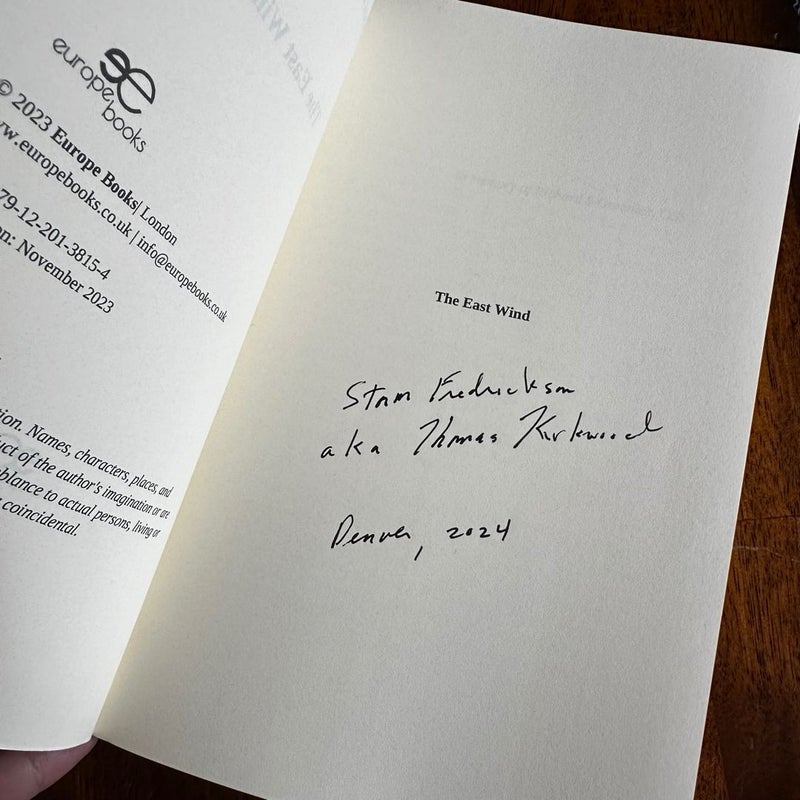 The East Win
europe
books
© 2023 Europe Books| London
www.europebooks.co.uk | info@europebooks.co.uk
79-12-201-3815-4
on: November 2023
tion. Names, characters, places, and
uct of the author's imagination or are
blance to actual persons, living or
coincidental.
The East Wind
Stam Fredrickson
aka Thomas Kirkwood
Denver, 2024